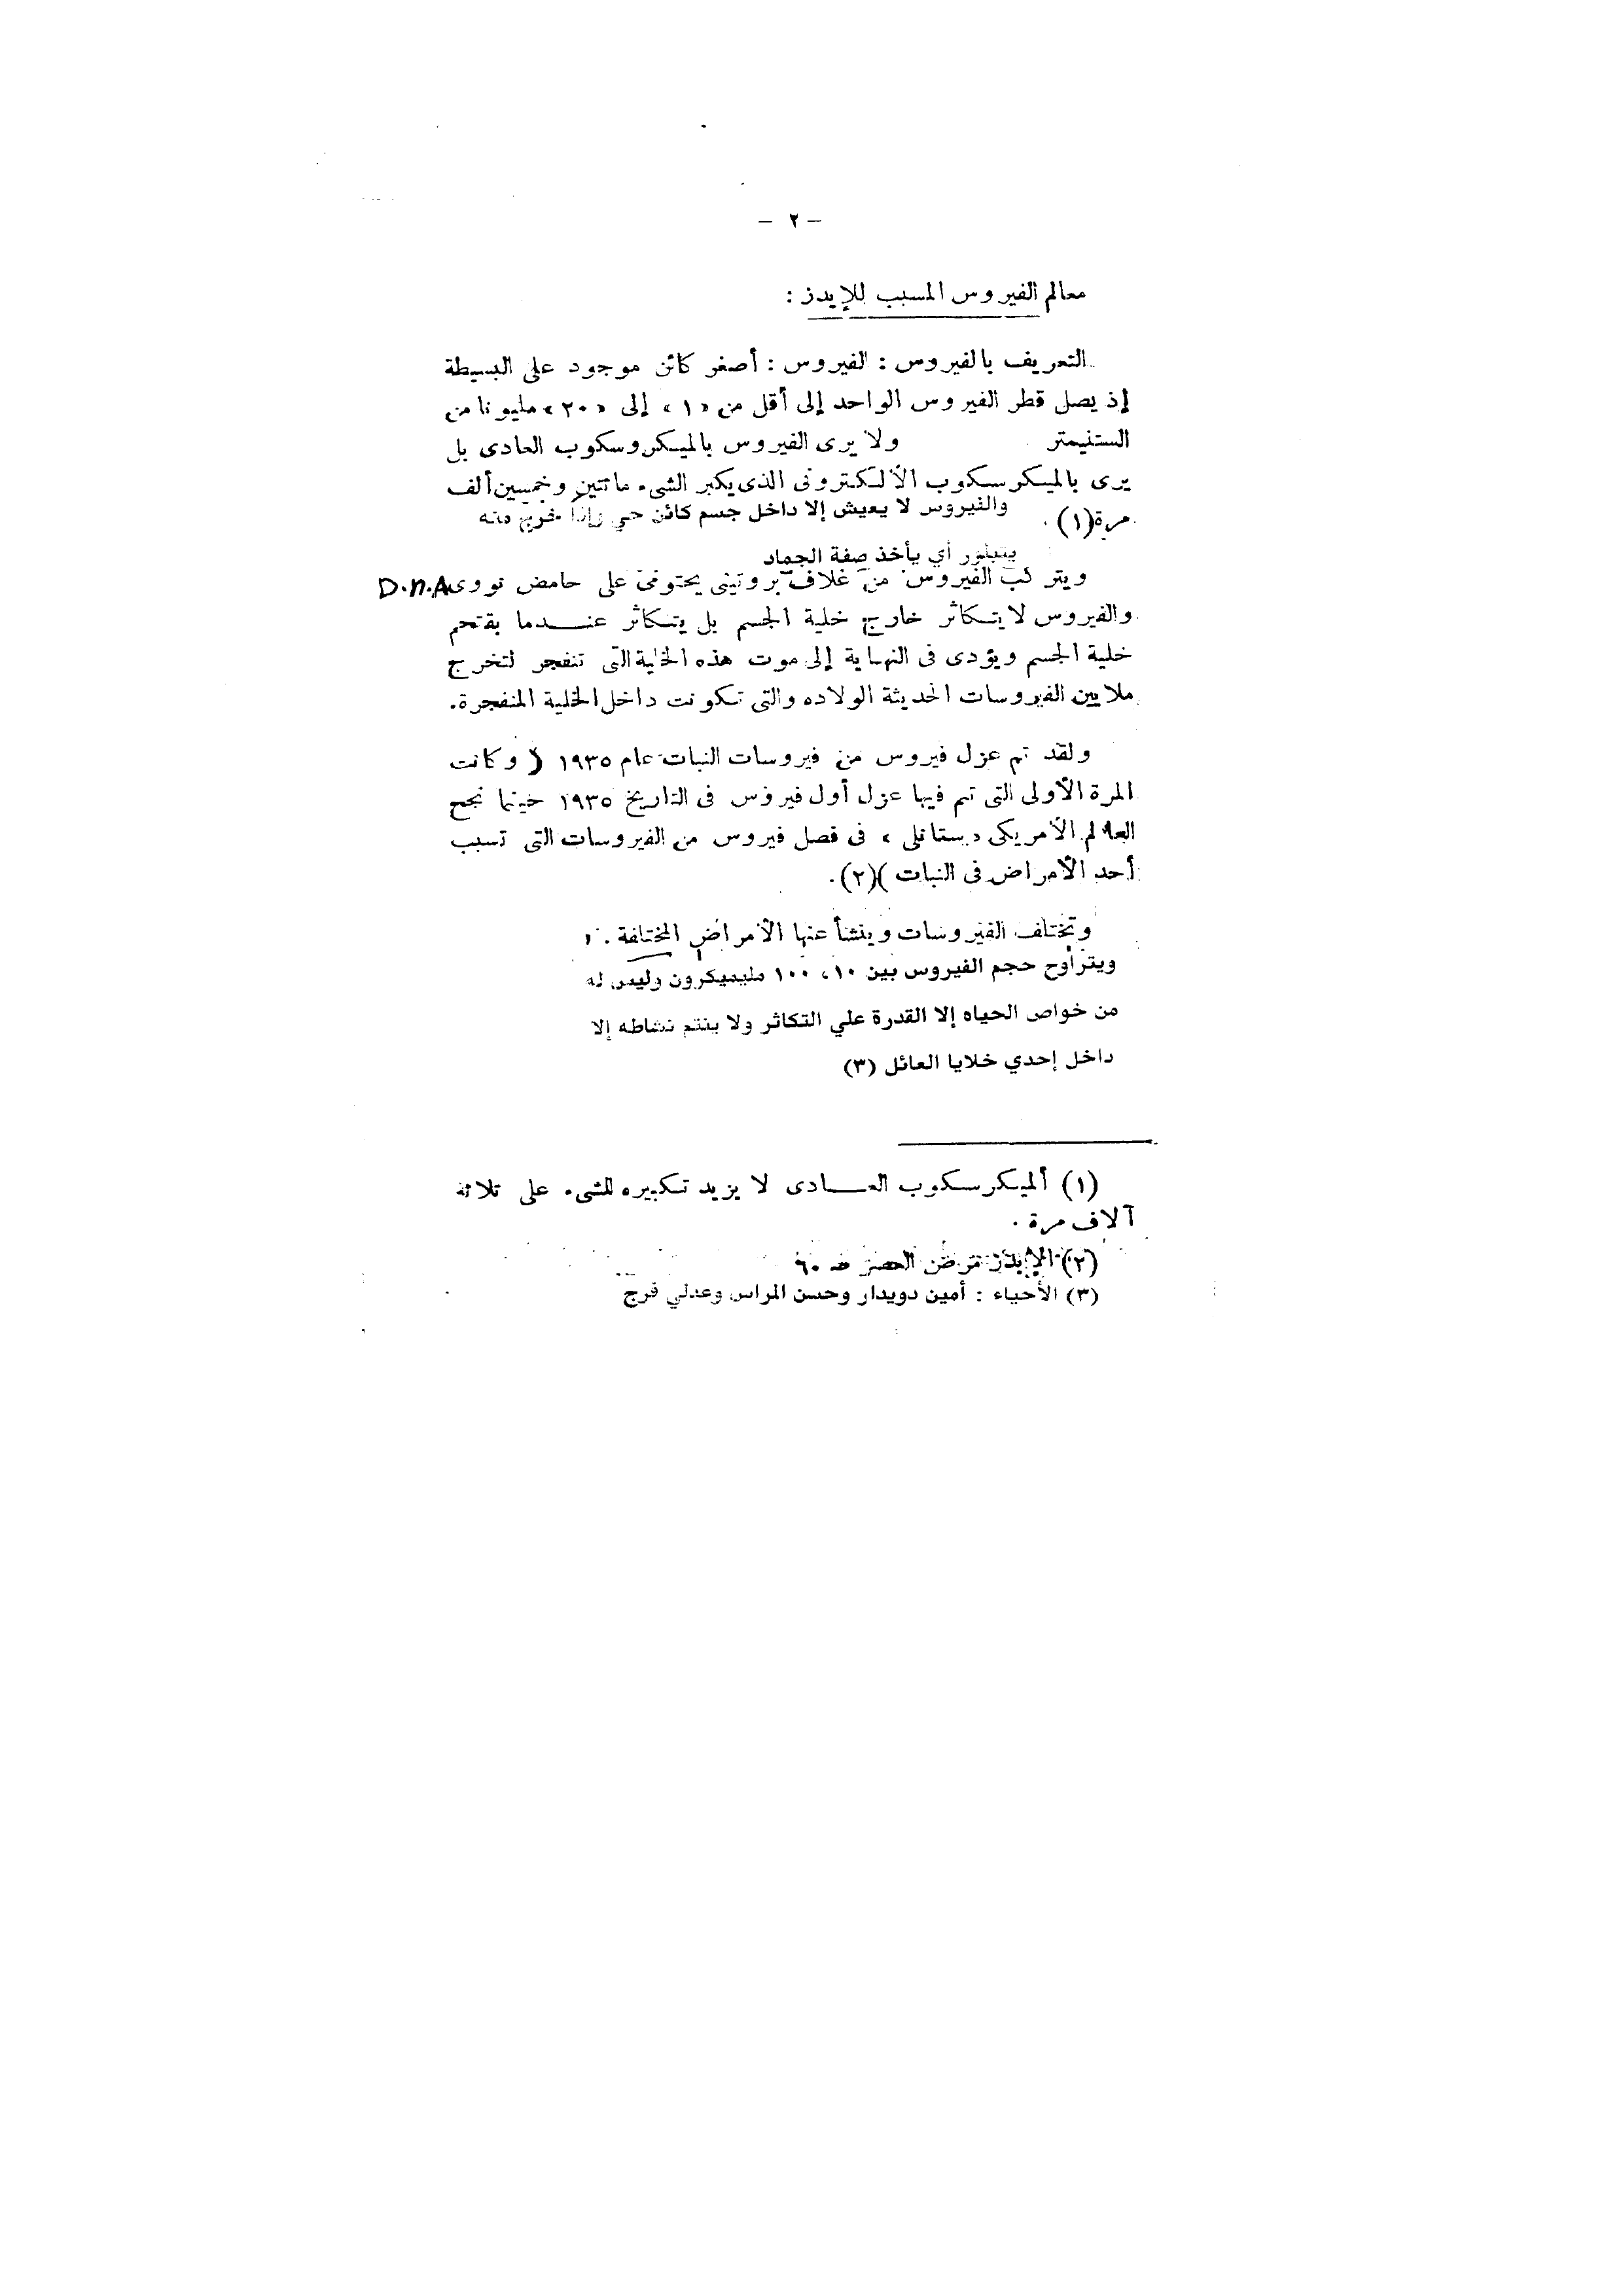 — ٢ —
معالم الفيروس المسبب للإيدز :
التعريف بالفيروس : الفيروس : أصغر كائن موجود على البسيطة
إذ يصل قطر الفيروس الواحد إلى أقل من « ١ » إلى « ٢٠ » مليونا من
السنتيمتر ولا يرى الفيروس بالميكروسكوب العادى بل
يرى بالميكرسكوب الألكترونى الذى يكبر الشىء مائتين وخمسين ألف
مرة (١) . والفيروس لا يعيش إلا داخل جسم كائن حي وإذا خرج منه
يتبلور أي يأخذ صفة الجماد
ويتركب الفيروس من غلاف بروتينى يحتوى على حامض نووى D.n.A
والفيروس لا يتكاثر خارج خلية الجسم بل يتكاثر عندما يقتحم
خلية الجسم ويؤدى فى النهاية إلى موت هذه الخلية التى تنفجر لتخرج
ملايين الفيروسات الحديثة الولاده والتى تكونت داخل الخلية المنفجرة .
ولقد تم عزل فيروس من فيروسات النبات عام ١٩٣٥ ( وكانت
المرة الأولى التى تم فيها عزل أول فيروس فى التاريخ ١٩٣٥ حينما نجح
العالم الأمريكى « ستانلى » فى فصل فيروس من الفيروسات التى تسبب
أحد الأمراض فى النبات )(٢) .
وتختلف الفيروسات وينشأ عنها الأمراض المختلفة .
ويتراوح حجم الفيروس بين ١٠ ، ١٠٠ ملليميكرون وليس له
من خواص الحياه إلا القدرة علي التكاثر ولا ينتم نشاطه إلا
داخل إحدي خلايا العائل (٣)
(١) ألميكرسكوب العادى لا يزيد تكبيره للشىء على ثلاثة
آلاف مرة .
(٢) الإيدز مرض العصر صـ ٦٠
(٣) الأحياء : أمين دويدار وحسن المراس وعدلي فرج